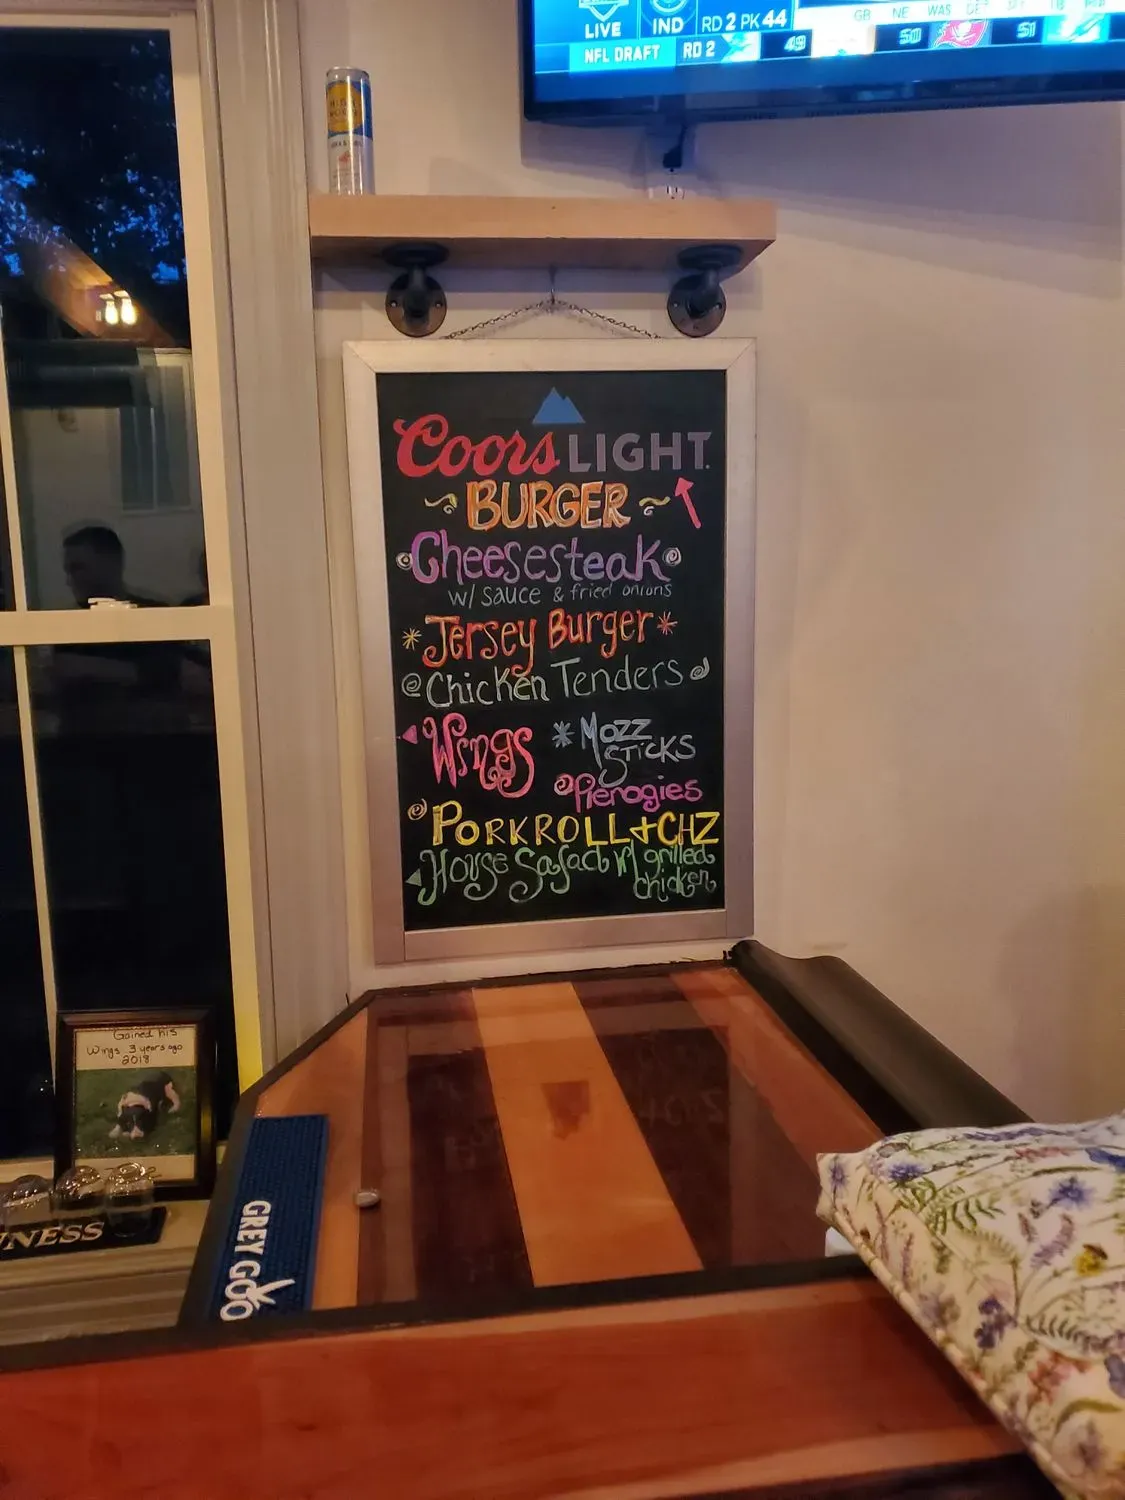 LIVE
IND
RD 2 PK 44
GB NE WAS DET
NFL DRAFT RD 2 49 50 51
Coors LIGHT
BURGER
Cheesesteak
w/ sauce & fried onions
Jersey Burger
Chicken Tenders
Wings
Mozz
Sticks
Pierogies
PORKROLL + CHZ
House Salad w/ grilled
chicken
Gained his
Wings 3 years ago
2018
GREY GOO
NESS